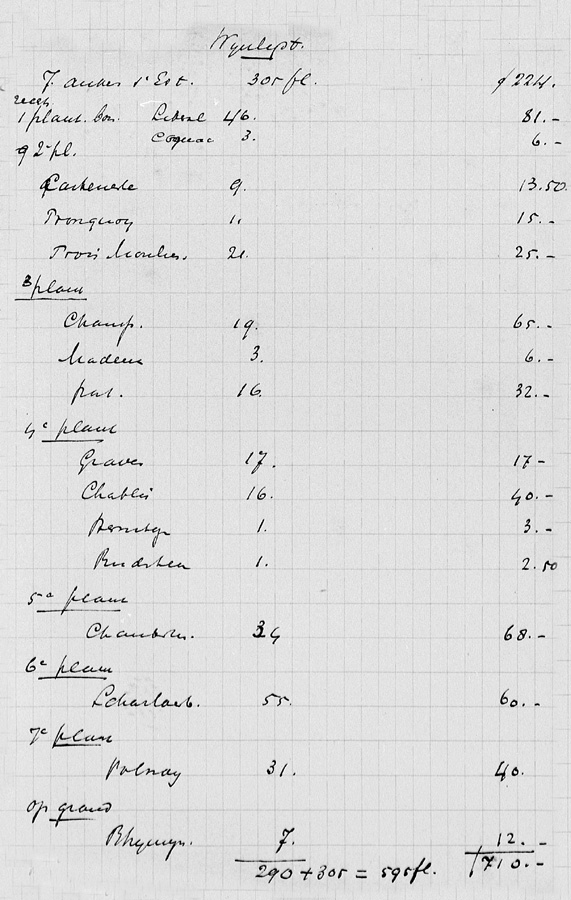 Wynlyst.
7 ankers St Est. 305 fl. ƒ 224.
rechts
1 plank. bov. Liberal 46. 81.-
Cognac 3. 6.-
q 2e pl.
Cantenerle 9. 13.50
Tronquoy 11. 15.-
Trois Moulins. 21. 25.-
3 plank
Champ. 19. 65.-
Madera 3. 6.-
port. 16. 32.-
4e plank
Graves 17. 17-
Chablis 16. 40.-
Hermitge 1. 3.-
Rudsheim 1. 2.50
5e plank
Chambertin. 34 68.-
6e plank
Scharlach. 55. 60.-
7e plank
Volnay 31. 40.
op grond
Rhynwyn. 7. 12.-
290 + 305 = 595 fl. 710.-